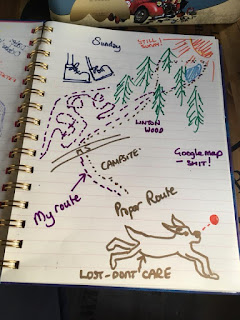 Sunday
STILL
SUNNY!
LINTON
WOOD
CAMPSITE
Google map
- SHIT!
My route
Proper Route
LOST - DONT CARE